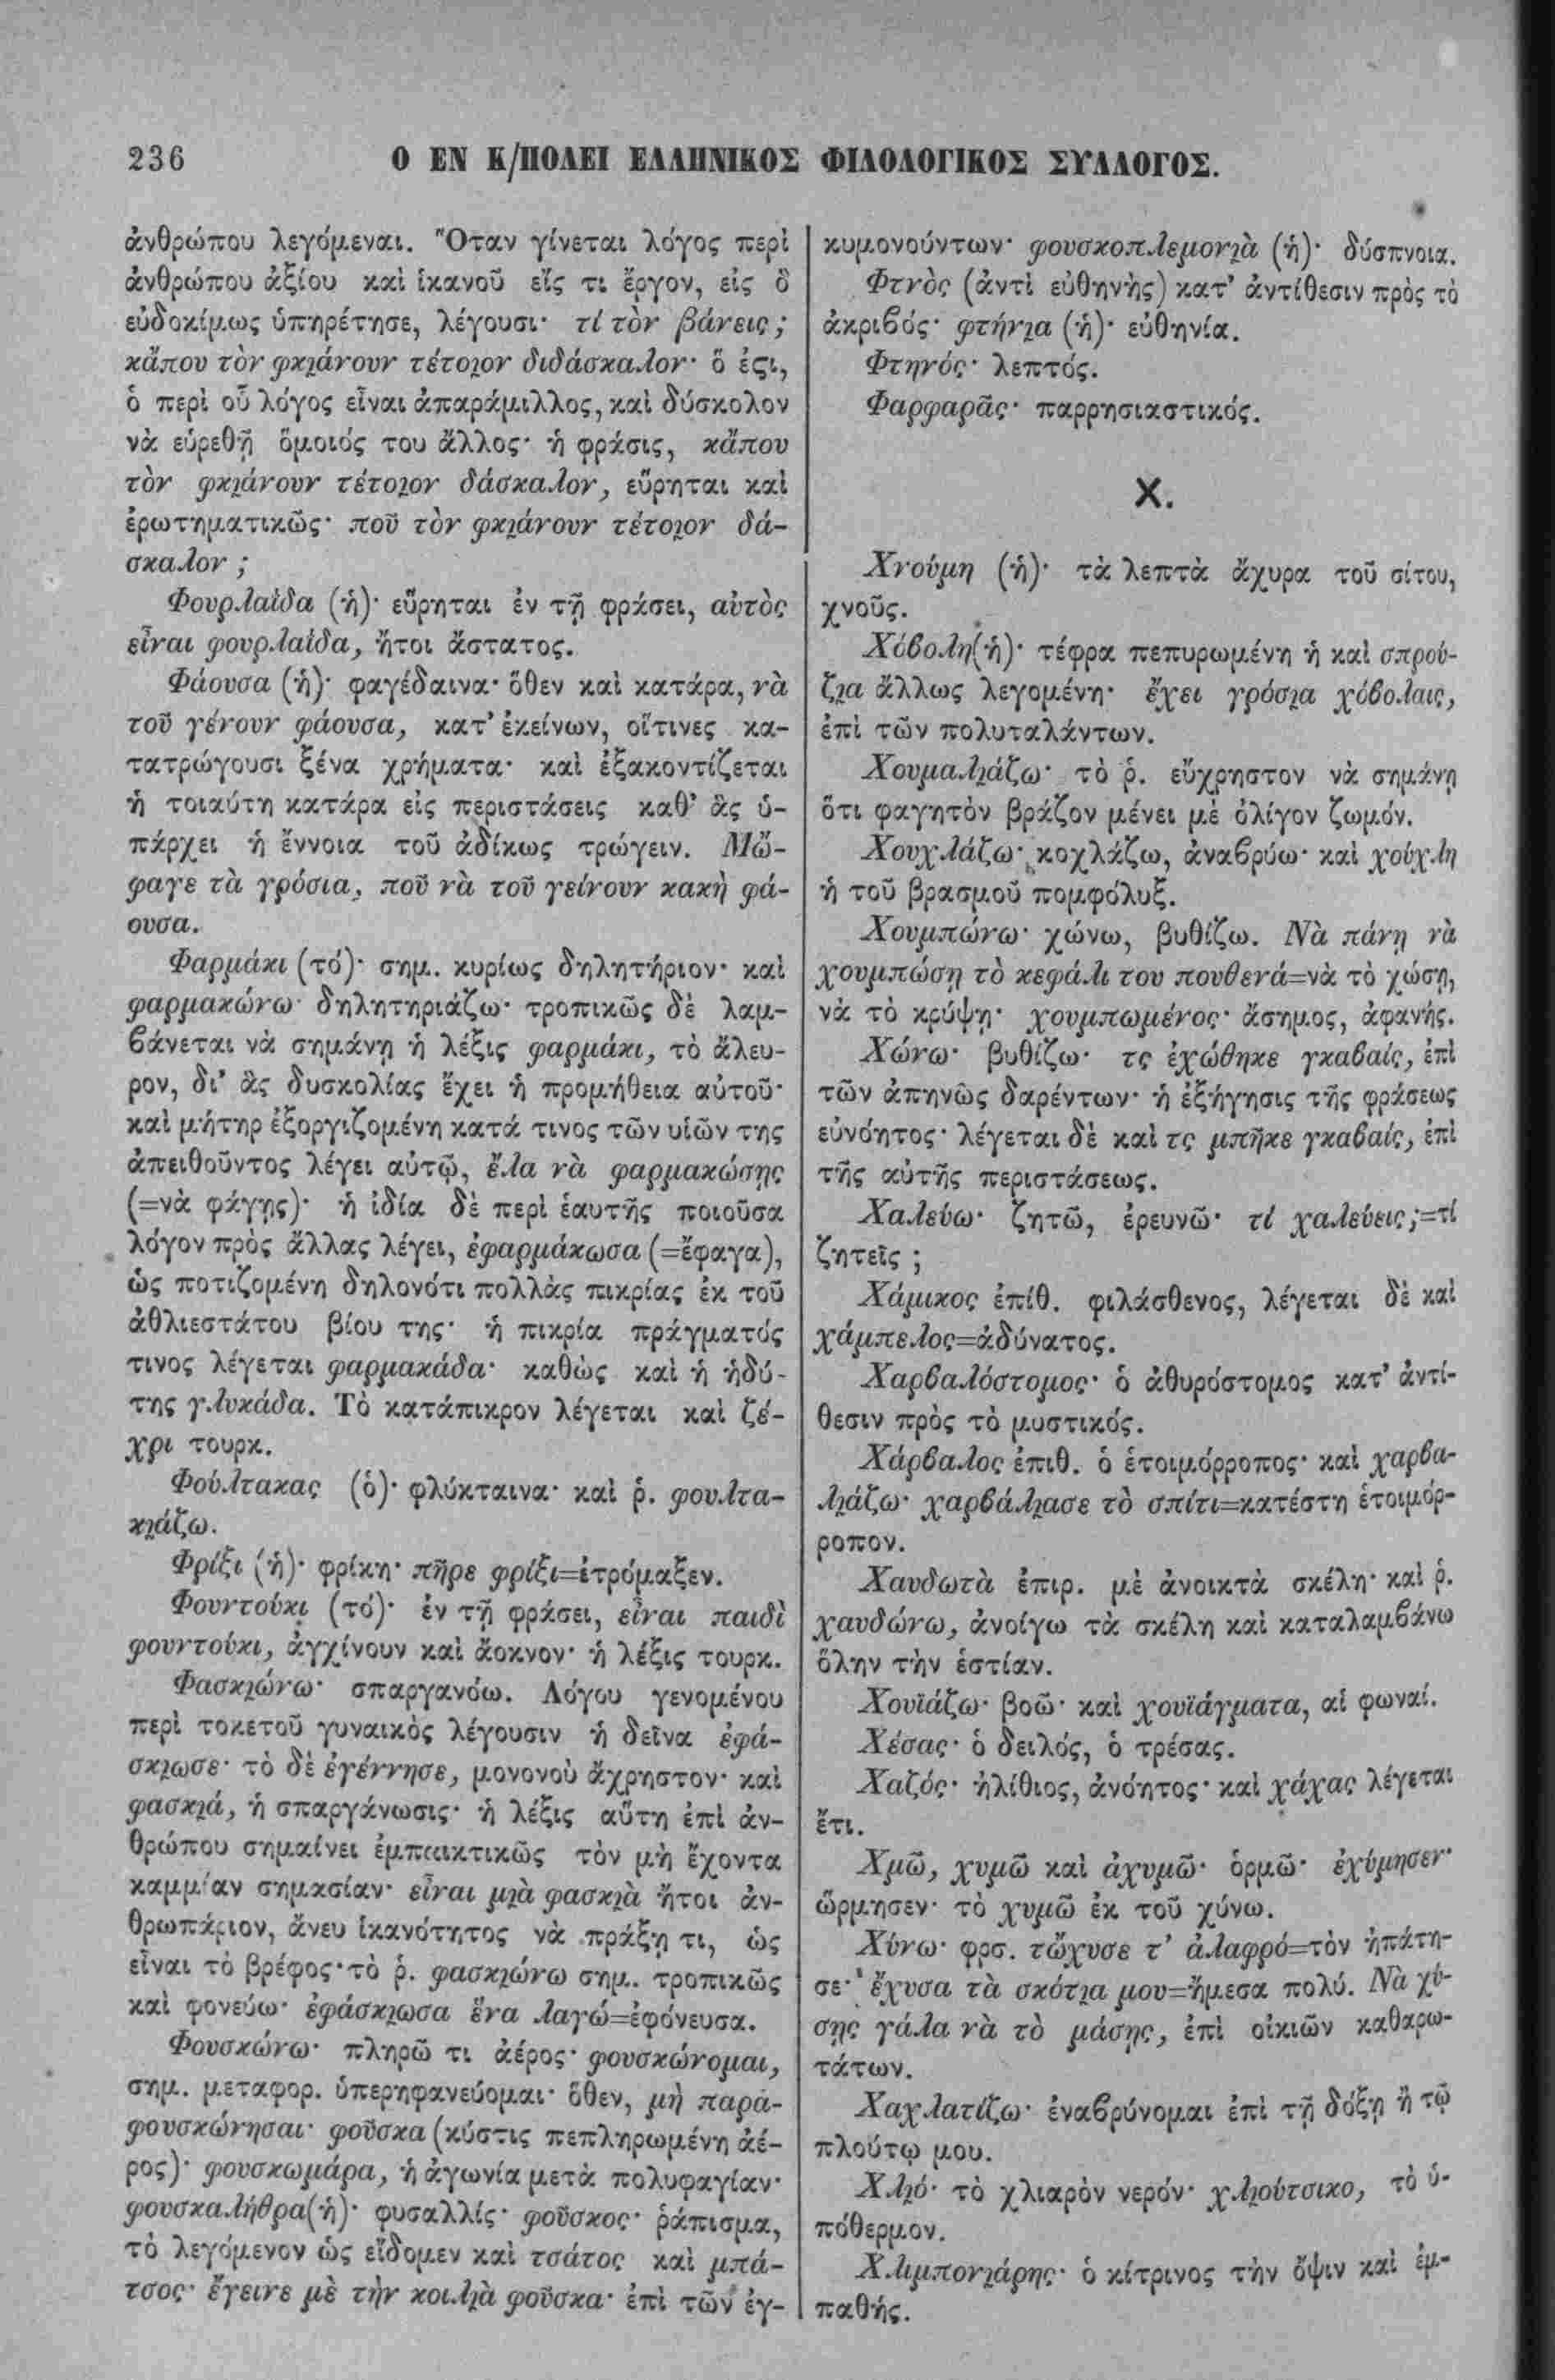 236
Ο ΕΝ Κ/ΠΟΛΕΙ ΕΛΛΗΝΙΚΟΣ ΦΙΛΟΛΟΓΙΚΟΣ ΣΥΛΛΟΓΟΣ.
ἀνθρώπου λεγόμεναι. Ὅταν γίνεται λόγος περὶ
ἀνθρώπου ἀξίου καὶ ἱκανοῦ εἴς τι ἔργον, εἰς ὃ
εὐδοκίμως ὑπηρέτησε, λέγουσι· τί τὸν βάνεις;
κἄπου τὸν φκι̯άνουν τέτοι̯ον διδάσκαλον· ὅ ἐστι,
ὁ περὶ οὗ λόγος εἶναι ἀπαράμιλλος, καὶ δύσκολον
νὰ εὑρεθῇ ὅμοιός του ἄλλος· ἡ φράσις, κἄπου
τὸν φκι̯άνουν τέτοι̯ον δάσκαλον, εὕρηται καὶ
ἐρωτηματικῶς· ποῦ τὸν φκι̯άνουν τέτοι̯ον δά-
σκαλον ;
Φουρλαΐδα (ἡ)· εὕρηται ἐν τῇ φράσει, αὐτὸς
εἶναι φουρλαΐδα, ἤτοι ἄστατος.
Φάουσα (ἡ)· φαγέδαινα· ὅθεν καὶ κατάρα, νὰ
τοῦ γένουν φάουσα, κατ' ἐκείνων, οἵτινες κα-
τατρώγουσι ξένα χρήματα· καὶ ἐξακοντίζεται
ἡ τοιαύτη κατάρα εἰς περιστάσεις καθ' ἃς ὑ-
πάρχει ἡ ἔννοια τοῦ ἀδίκως τρώγειν. Μὤ-
φαγε τὰ γρόσια, ποῦ νὰ τοῦ γείνουν κακὴ φά-
ουσα.
Φαρμάκι (τό)· σημ. κυρίως δηλητήριον· καὶ
φαρμακώνω· δηλητηριάζω· τροπικῶς δὲ λαμ-
βάνεται νὰ σημάνῃ ἡ λέξις φαρμάκι, τὸ ἄλευ-
ρον, δι' ἃς δυσκολίας ἔχει ἡ προμήθεια αὐτοῦ·
καὶ μήτηρ ἐξοργιζομένη κατά τινος τῶν υἱῶν της
ἀπειθοῦντος λέγει αὐτῷ, ἔλα νὰ φαρμακώσῃς
(=νὰ φάγῃς)· ἡ ἰδία δὲ περὶ ἑαυτῆς ποιοῦσα
λόγον πρὸς ἄλλας λέγει, ἐφαρμάκωσα (=ἔφαγα),
ὡς ποτιζομένη δηλονότι πολλὰς πικρίας ἐκ τοῦ
ἀθλιεστάτου βίου της· ἡ πικρία πράγματός
τινος λέγεται φαρμακάδα· καθὼς καὶ ἡ ἡδύ-
της γλυκάδα. Τὸ κατάπικρον λέγεται καὶ ζέ-
χρι τουρκ.
Φούλτακας (ὁ)· φλύκταινα· καὶ ῥ. φουλτα-
κι̯άζω.
Φρίξι (ἡ)· φρίκη· πῆρε φρίξι=ἐτρόμαξεν.
Φουντούκι (τό)· ἐν τῇ φράσει, εἶναι παιδὶ
φουντούκι, ἀγχίνουν καὶ ἄοκνον· ἡ λέξις τουρκ.
Φασκι̯ώνω· σπαργανόω. Λόγου γενομένου
περὶ τοκετοῦ γυναικὸς λέγουσιν ἡ δεῖνα ἐφά-
σκι̯ωσε· τὸ δὲ ἐγέννησε, μονονοὺ ἄχρηστον· καὶ
φασκι̯ά, ἡ σπαργάνωσις· ἡ λέξις αὕτη ἐπὶ ἀν-
θρώπου σημαίνει ἐμπαικτικῶς τὸν μὴ ἔχοντα
καμμίαν σημασίαν· εἶναι μι̯ὰ φασκι̯ὰ ἤτοι ἀν-
θρωπάριον, ἄνευ ἱκανότητος νὰ πράξῃ τι, ὡς
εἶναι τὸ βρέφος· τὸ ῥ. φασκι̯ώνω σημ. τροπικῶς
καὶ φονεύω· ἐφάσκι̯ωσα ἕνα λαγώ=ἐφόνευσα.
Φουσκώνω· πληρῶ τι ἀέρος· φουσκώνομαι,
σημ. μεταφορ. ὑπερηφανεύομαι· ὅθεν, μὴ παρα-
φουσκώνησαι· φοῦσκα (κύστις πεπληρωμένη ἀέ-
ρος)· φουσκωμάρα, ἡ ἀγωνία μετὰ πολυφαγίαν·
φουσκαλήθρα (ἡ)· φυσαλλίς· φοῦσκος· ῥάπισμα,
τὸ λεγόμενον ὡς εἴδομεν καὶ τσάτος καὶ μπά-
τσος· ἔγεινε μὲ τὴν κοιλι̯ὰ φοῦσκα· ἐπὶ τῶν ἐγ-
κυμονούντων· φουσκοπλεμονι̯ὰ (ἡ)· δύσπνοια.
Φτνὸς (ἀντὶ εὐθηνὴς) κατ' ἀντίθεσιν πρὸς τὸ
ἀκριβός· φτήνι̯α (ἡ)· εὐθηνία.
Φτηνός· λεπτός.
Φαρφαρᾶς· παρρησιαστικός.
Χ.
Χνούμη (ἡ)· τὰ λεπτὰ ἄχυρα τοῦ σίτου,
χνοῦς.
Χόβολη (ἡ)· τέφρα πεπυρωμένη ἡ καὶ σπρού-
ζι̯α ἄλλως λεγομένη· ἔχει γρόσι̯α χόβολαις,
ἐπὶ τῶν πολυταλάντων.
Χουμαλι̯άζω· τὸ ῥ. εὔχρηστον νὰ σημάνῃ
ὅτι φαγητὸν βράζον μένει μὲ ὀλίγον ζωμόν.
Χουχλάζω· κοχλάζω, ἀναβρύω· καὶ χούχλη
ἡ τοῦ βρασμοῦ πομφόλυξ.
Χουμπώνω· χώνω, βυθίζω. Νὰ πάνῃ νὰ
χουμπώσῃ τὸ κεφάλι του πουθενά=νὰ τὸ χώσῃ,
νὰ τὸ κρύψῃ· χουμπωμένος· ἄσημος, ἀφανής.
Χώνω· βυθίζω· τς ἐχώθηκε γκαβαίς, ἐπὶ
τῶν ἀπηνῶς δαρέντων· ἡ ἐξήγησις τῆς φράσεως
εὐνόητος· λέγεται δὲ καὶ τς μπῆκε γκαβαίς, ἐπὶ
τῆς αὐτῆς περιστάσεως.
Χαλεύω· ζητῶ, ἐρευνῶ· τί χαλεύεις;=τί
ζητεῖς ;
Χάμικος ἐπίθ. φιλάσθενος, λέγεται δὲ καὶ
χάμπελος=ἀδύνατος.
Χαρβαλόστομος· ὁ ἀθυρόστομος κατ' ἀντί-
θεσιν πρὸς τὸ μυστικός.
Χάρβαλος ἐπιθ. ὁ ἑτοιμόρροπος· καὶ χαρβα-
λι̯άζω· χαρβάλι̯ασε τὸ σπίτι=κατέστη ἑτοιμόρ-
ροπον.
Χαυδωτὰ ἐπιρ. μὲ ἀνοικτὰ σκέλη· καὶ ῥ.
χαυδώνω, ἀνοίγω τὰ σκέλη καὶ καταλαμβάνω
ὅλην τὴν ἑστίαν.
Χουϊάζω· βοῶ· καὶ χουϊάγματα, αἱ φωναί.
Χέσας· ὁ δειλός, ὁ τρέσας.
Χαζός· ἠλίθιος, ἀνόητος· καὶ χάχας λέγεται
ἔτι.
Χμῶ, χυμῶ καὶ ἀχυμῶ· ὁρμῶ· ἐχύμησεν·
ὥρμησεν· τὸ χυμῶ ἐκ τοῦ χύνω.
Χύνω· φρσ. τὤχυσε τ' ἀλαφρό=τὸν ἠπάτη-
σε· ἔχυσα τὰ σκότι̯α μου=ἤμεσα πολύ. Νὰ χύ-
σῃς γάλα νὰ τὸ μάσῃς, ἐπὶ οἰκιῶν καθαρω-
τάτων.
Χαχλατίζω· ἐναβρύνομαι ἐπὶ τῇ δόξῃ ἢ τῷ
πλούτῳ μου.
Χλι̯ό· τὸ χλιαρὸν νερόν· χλι̯ούτσικο, τὸ ὑ-
πόθερμον.
Χλιμπονι̯άρης· ὁ κίτρινος τὴν ὄψιν καὶ ἐμ-
παθής.